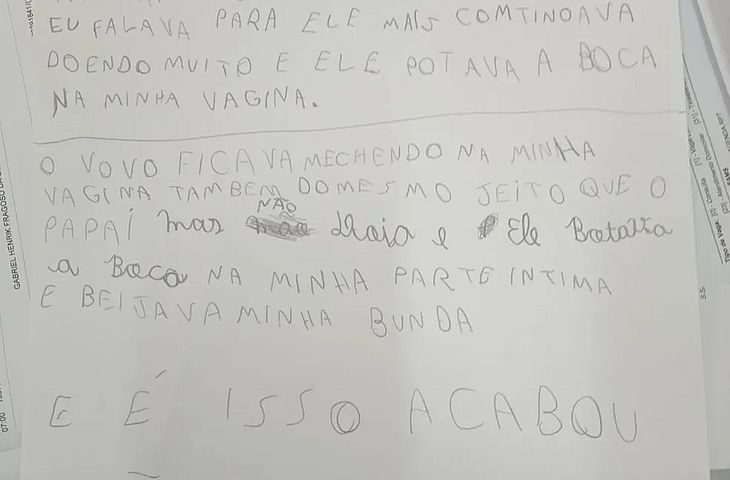 EU FALAVA PARA ELE MAIS COMTINOAVA
DOENDO MUITO E ELE POTAVA A BOCA
NA MINHA VAGINA.
O VOVO FICAVA MECHENDO NA MINHA
VAGINA TAMBEM DO MESMO JEITO QUE O
NÃO
PAPAÍ mas e Ele
a Boca NA MINHA PARTE INTIMA
E BEIJAVA MINHA BUNDA
E É ISSO ACABOU